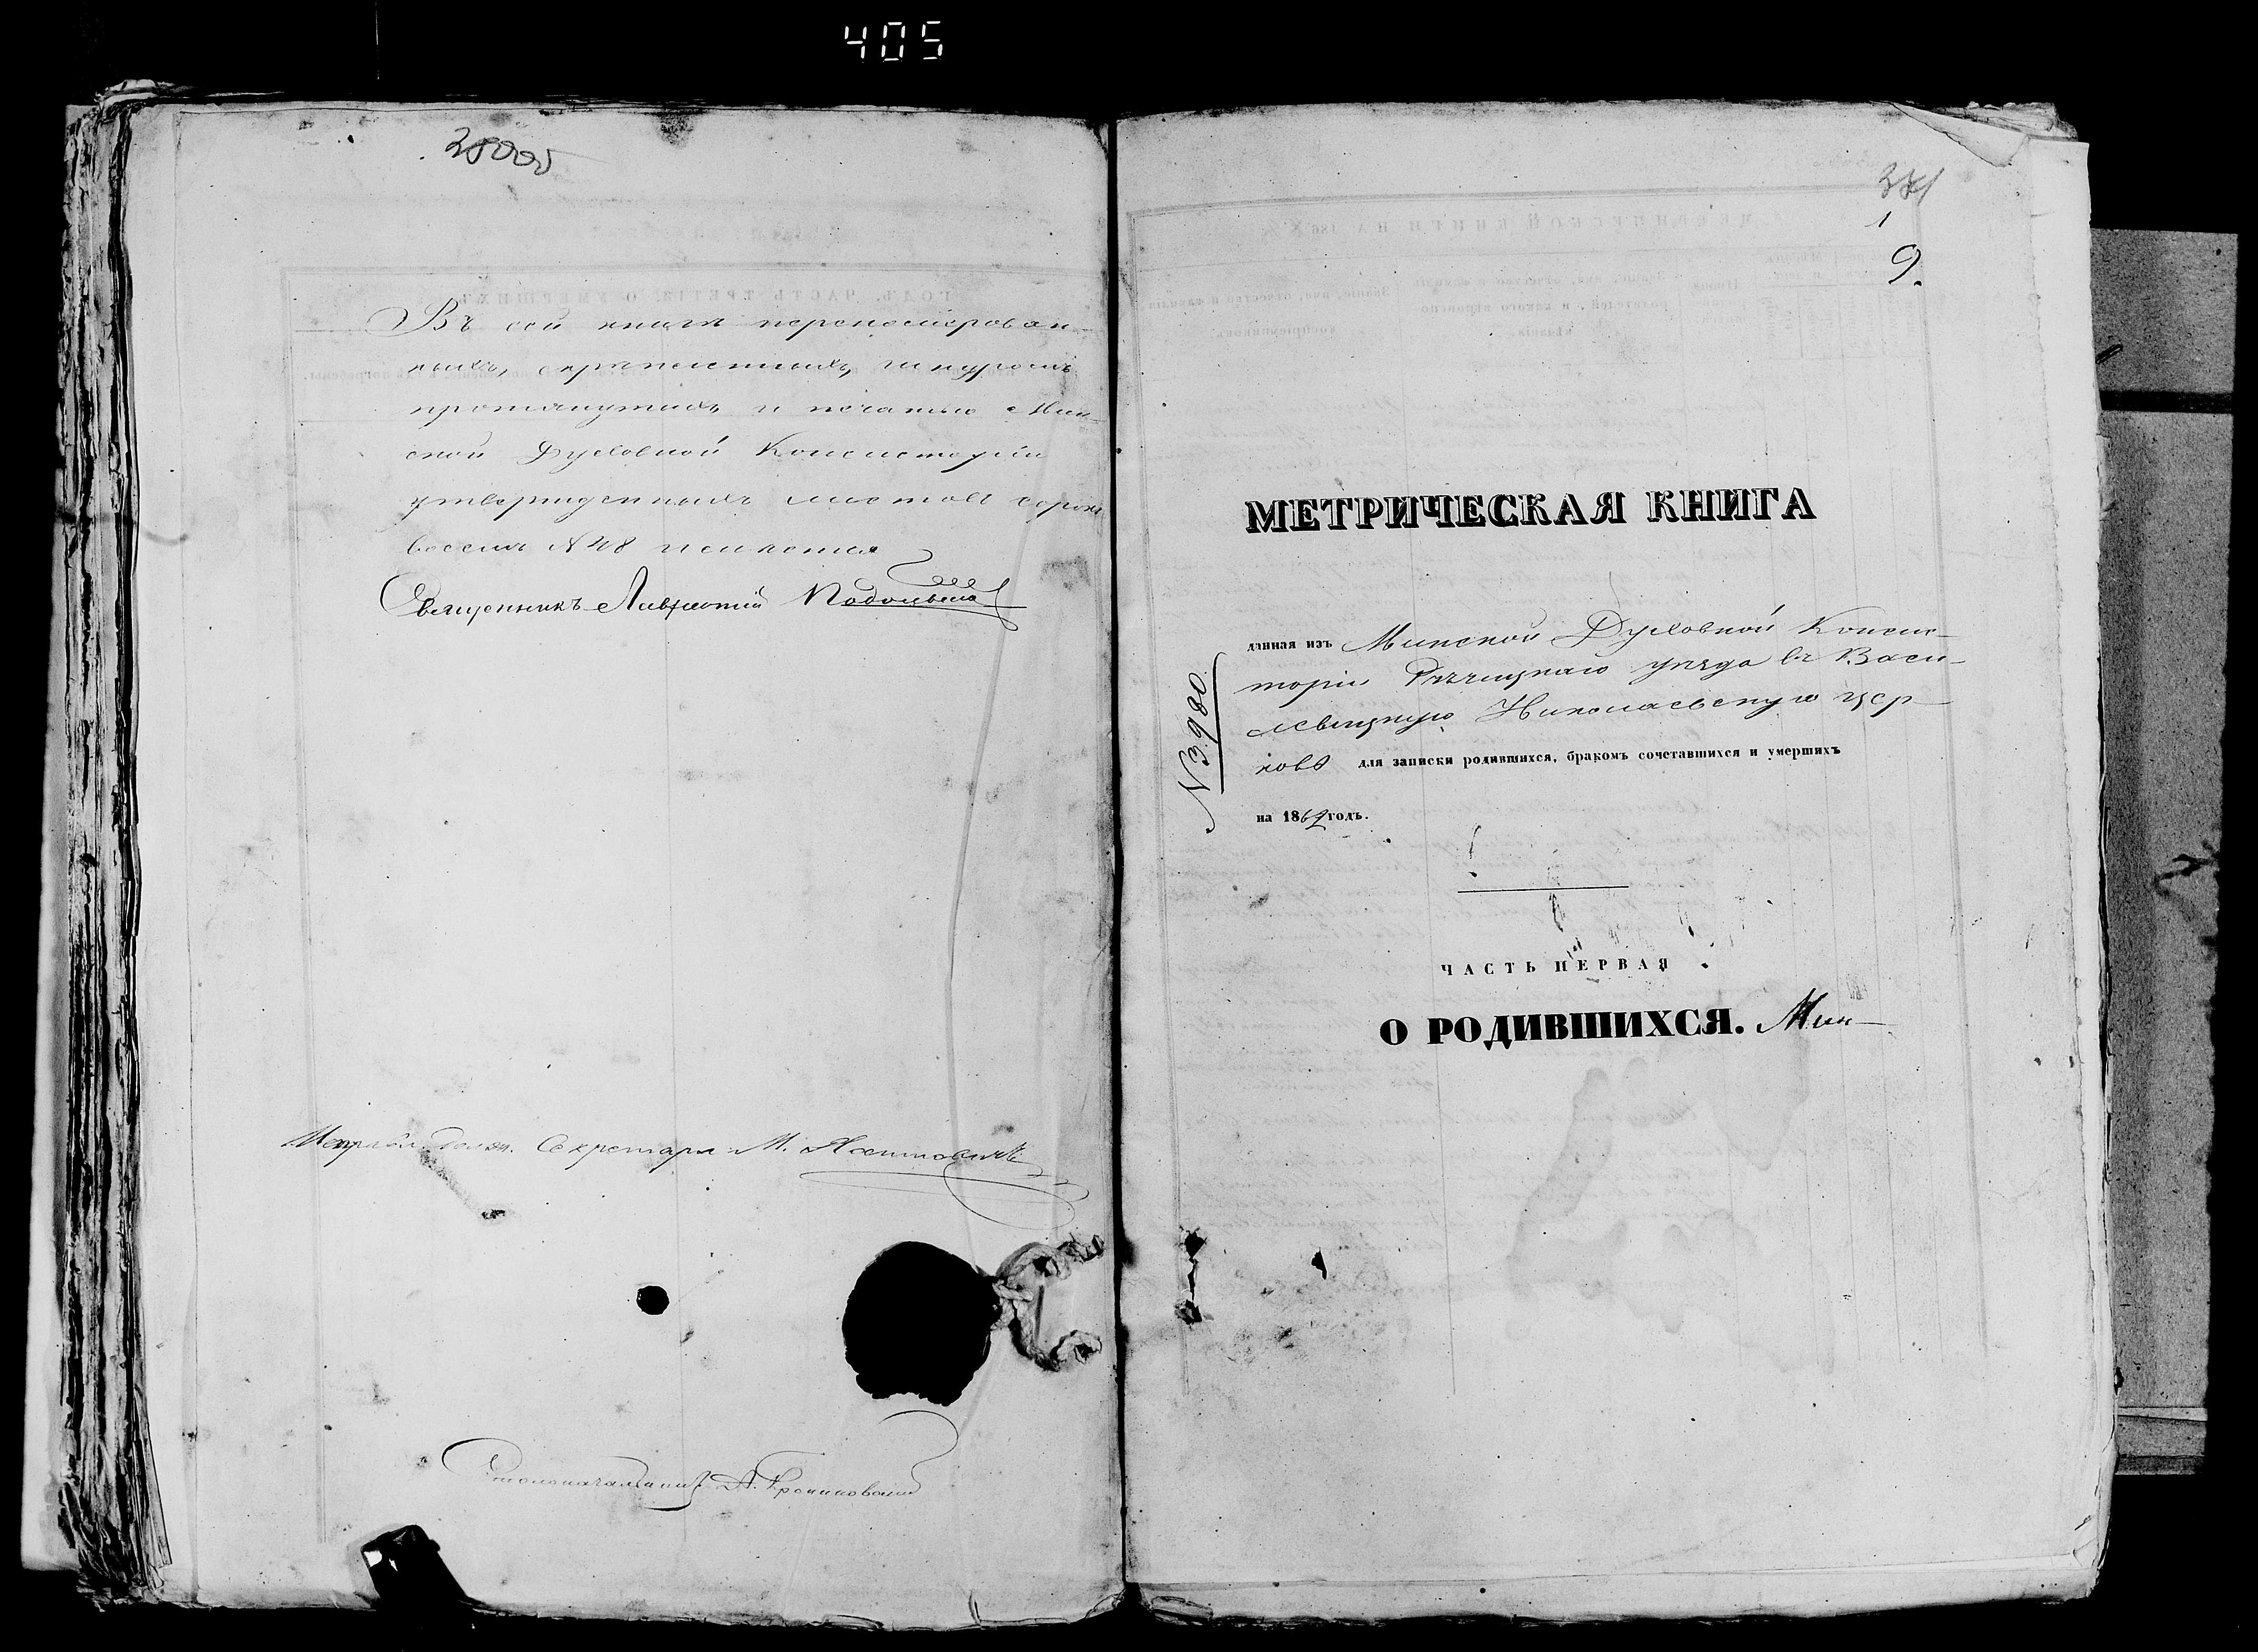 405
Въ сей книгѣ перенумерован-
ныхъ, скрѣпленныхъ, шнуромъ
протянутыхъ и печатью Мин-
ской Духовной Консисторіи
утвержденныхъ листовъ сорокъ
восемь № 48 имѣется
Священникъ Лаврентій
Секретаря М.
Столоначальникъ А.
371
1
9.
МЕТРИЧЕСКАЯ КНИГА
данная изъ Минской Духовной Консис-
торіи Рѣчицкаго уѣзда въ Васи-
левицкую Николаевскую цер-
ковь для записки родившихся, бракомъ сочетавшихся и умершихъ
на 1862 годъ.
N 3980
ЧАСТЬ ПЕРВАЯ
О РОДИВШИХСЯ. Мин-